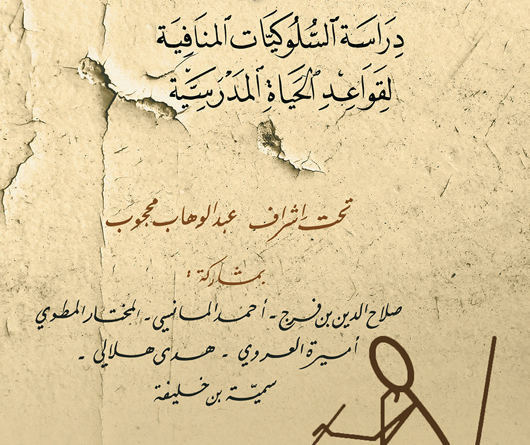 دِرَاسَة ٱلسُّلُوكِيَّات ٱلمنَافِيَة
لِقَوَاعِدِ ٱلحَيَاةِ ٱلمَدْرَسِيَّة
تحت إشراف عبدالوهاب محجوب
بمشاركة :
صلاح الدين بن فرج - أحمد المانسي - المختار المطوي
أميرة العروي - هدى هلالي -
سميّة بن خليفة